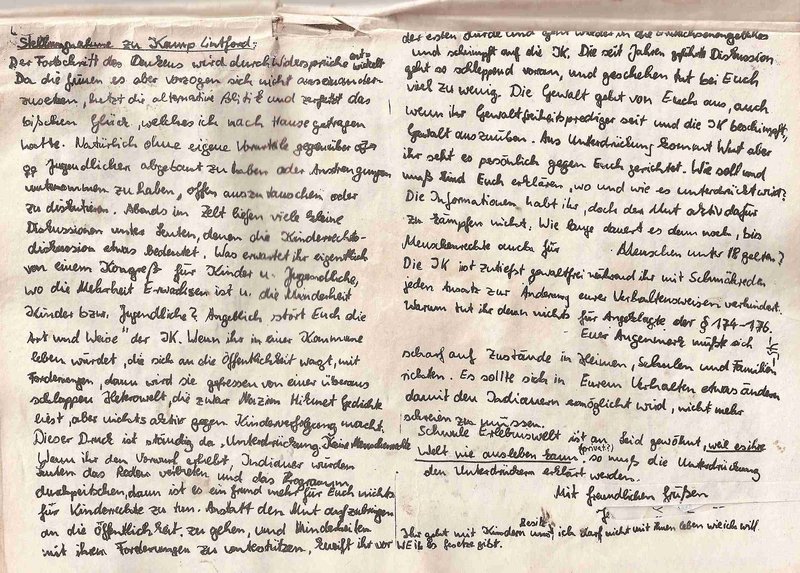 Stellungnahme zu Kamp Lintford:
Der Fortschritt des Denkens wird durch Widersprüche entwickelt
Da die Grünen es aber vorzogen sich nicht auseinander-
zusetzen, nutzt die alternative Blitik und zerfetzt das
bißchen Glück, welches ich nach Hause getragen
hatte. Natürlich ohne eigene Vorurteile gegenüber
Jugendlicher abgebaut zu haben oder Anstrengungen
unternommen zu haben, offen auszutauschen oder
zu diskutieren. Abends im Zelt liefen viele kleine
Diskussionen unter Leuten, denen die Kinderrechts-
diskussion etwas bedeutet. Was erwartet ihr eigentlich
von einem Kongreß für Kinder u. Jugendliche,
wo die Mehrheit Erwachsen ist u. die Minderheit
Kinder bzw. Jugendliche? Angeblich stört Euch die
Art und Weise" der IK. Wenn ihr in einer Kommune
leben würdet, die sich an die Öffentlichkeit wagt, mit
Forderungen, dann wird sie gefressen von einer überaus
schlappen Heterowelt, die zwar Nazim Hikmet Gedichte
liest, aber nichts aktiv gegen Kinderverfolgung macht.
Dieser Druck ist ständig da, Unterdrückung. Keine Menschenrechte
Wenn ihr den Vorwurf erhebt, Indianer würden
das Reden verbieten und das Programm
durchpeitschen, dann ist es ein Grund mehr für Euch nichts
für Kinderrechte zu tun. Anstatt den Mut aufzubringen
an die Öffentlichkeit zu gehen, und Minderheiten
mit ihren Forderungen zu unterstützen, kneift ihr vor
der ersten Hürde und geht wieder in die
und schimpft auf die IK. Die seit Jahren geführte Diskussion
geht so schleppend voran, und geschehen tut bei Euch
viel zu wenig. Die Gewalt geht von Euch aus, auch
wenn ihr Gewaltfreiheitsprediger seit und die IK beschimpft,
Gewalt auszuüben. Aus Unterdrückung kommt Wut aber
ihr seht es persönlich gegen Euch gerichtet. Wie soll und
muß Kind Euch erklären, wo und wie es unterdrückt wird?
Die Informationen habt ihr, doch den Mut aktiv dafür
zu kämpfen nicht. Wie lange dauert es denn noch, bis
Menschenrechte auch für Menschen unter 18 gelten?
Die IK ist zutiefst gewaltfrei während ihr mit Schmähreden
jeden Ansatz zur Änderung eurer Verhaltensweisen verhindert.
Warum tut ihr denn nichts für Angeklagte der § 174-176.
Euer Augenmerk müßte sich
scharf auf Zustände in Heimen, Schulen und Familien
richten. Es sollte sich in Eurem Verhalten etwas ändern
damit den Indianern ermöglicht wird, nicht mehr
schreien zu müssen.
Schwule Erlebniswelt ist an. Seid gewöhnt, weil es ihre
(privat?)
Welt nie ausleben kann, so muß die Unterdrückung
den Unterdrückern erklärt werden.
Mit freundlichen Grüßen
Ihr geht mit Kindern um, ich darf nicht mit ihnen leben wie ich will
WEil es Gesetze gibt.